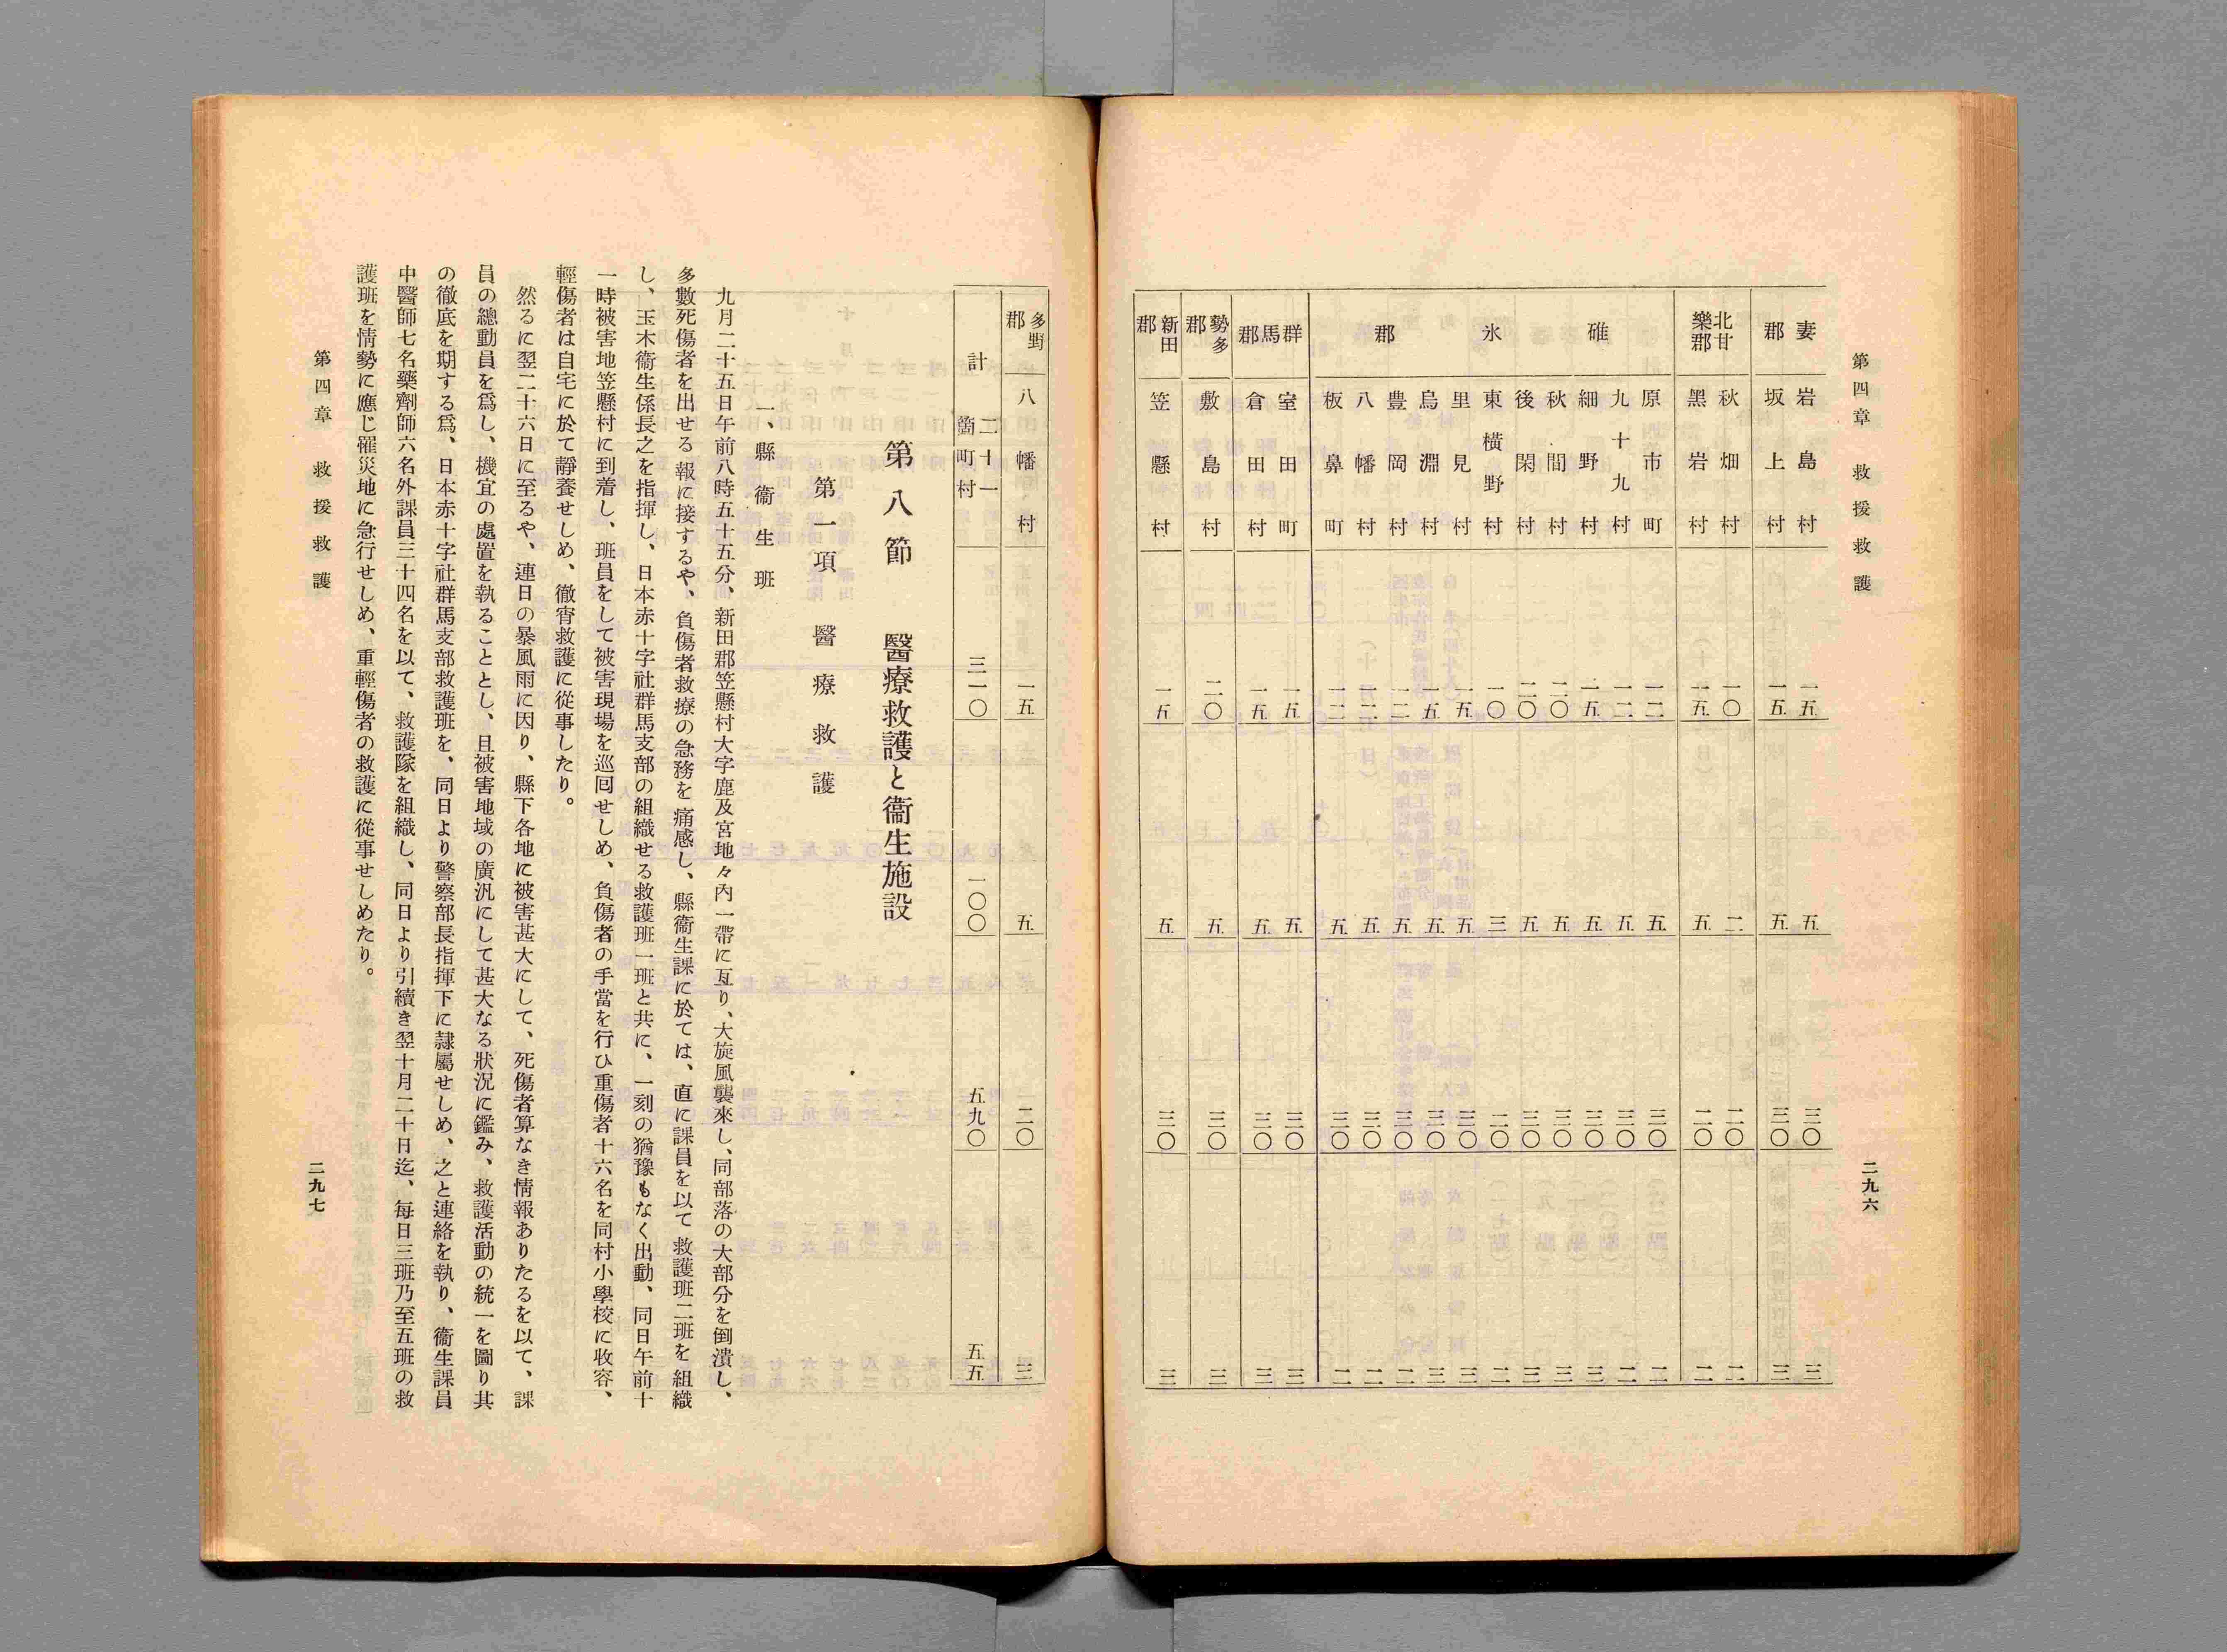 第四章 救援救護
二九六
妻郡 岩島村 一五 五 三〇 三
坂上村 一五 五 三〇 三
北甘樂郡 秋畑村 一〇 二 二〇 二
黑岩村 一五 五 二〇 二
碓氷郡 原市町 一二 五 三〇 二
九十九村 一二 五 三〇 二
細野村 一五 五 三〇 三
秋間村 二〇 五 三〇 三
後閑村 二〇 五 三〇 三
東橫野村 一〇 三 二〇 二
里見村 一五 五 三〇 三
烏淵村 一五 五 三〇 三
豊岡村 一二 五 三〇 二
八幡村 一二 五 三〇 二
板鼻町 一二 五 三〇 二
群馬郡 室田町 一五 五 三〇 三
倉田村 一五 五 三〇 三
勢多郡 敷島村 二〇 五 三〇 三
新田郡 笠懸村 一五 五 三〇 三
多野郡 八幡村 一五 五 二〇 三
計 二十一箇町村 三一〇 一〇〇 五九〇 五五
第八節 醫療救護と衞生施設
第一項 醫療救護
一、縣衞生班
九月二十五日午前八時五十五分、新田郡笠懸村大字鹿及宮地々內一帶に亙り、大旋風襲來し、同部落の大部分を倒潰し、
多數死傷者を出せる報に接するや、負傷者救療の急務を痛感し、縣衞生課に於ては、直に課員を以て救護班二班を組織
し、玉木衞生係長之を指揮し、日本赤十字社群馬支部の組織せる救護班一班と共に、一刻の猶豫もなく出動、同日午前十
一時被害地笠懸村に到着し、班員をして被害現場を巡囘せしめ、負傷者の手當を行ひ重傷者十六名を同村小學校に收容、
輕傷者は自宅に於て靜養せしめ、徹宵救護に從事したり。
然るに翌二十六日に至るや、連日の暴風雨に因り、縣下各地に被害甚大にして、死傷者算なき情報ありたるを以て、課
員の總動員を爲し、機宜の處置を執ることとし、且被害地域の廣汎にして甚大なる狀況に鑑み、救護活動の統一を圖り其
の徹底を期する爲、日本赤十字社群馬支部救護班を、同日より警察部長指揮下に隷屬せしめ、之と連絡を執り、衞生課員
中醫師七名藥劑師六名外課員三十四名を以て、救護隊を組織し、同日より引續き翌十月二十日迄、每日三班乃至五班の救
護班を情勢に應じ罹災地に急行せしめ、重輕傷者の救護に從事せしめたり。
第四章 救援救護
二九七